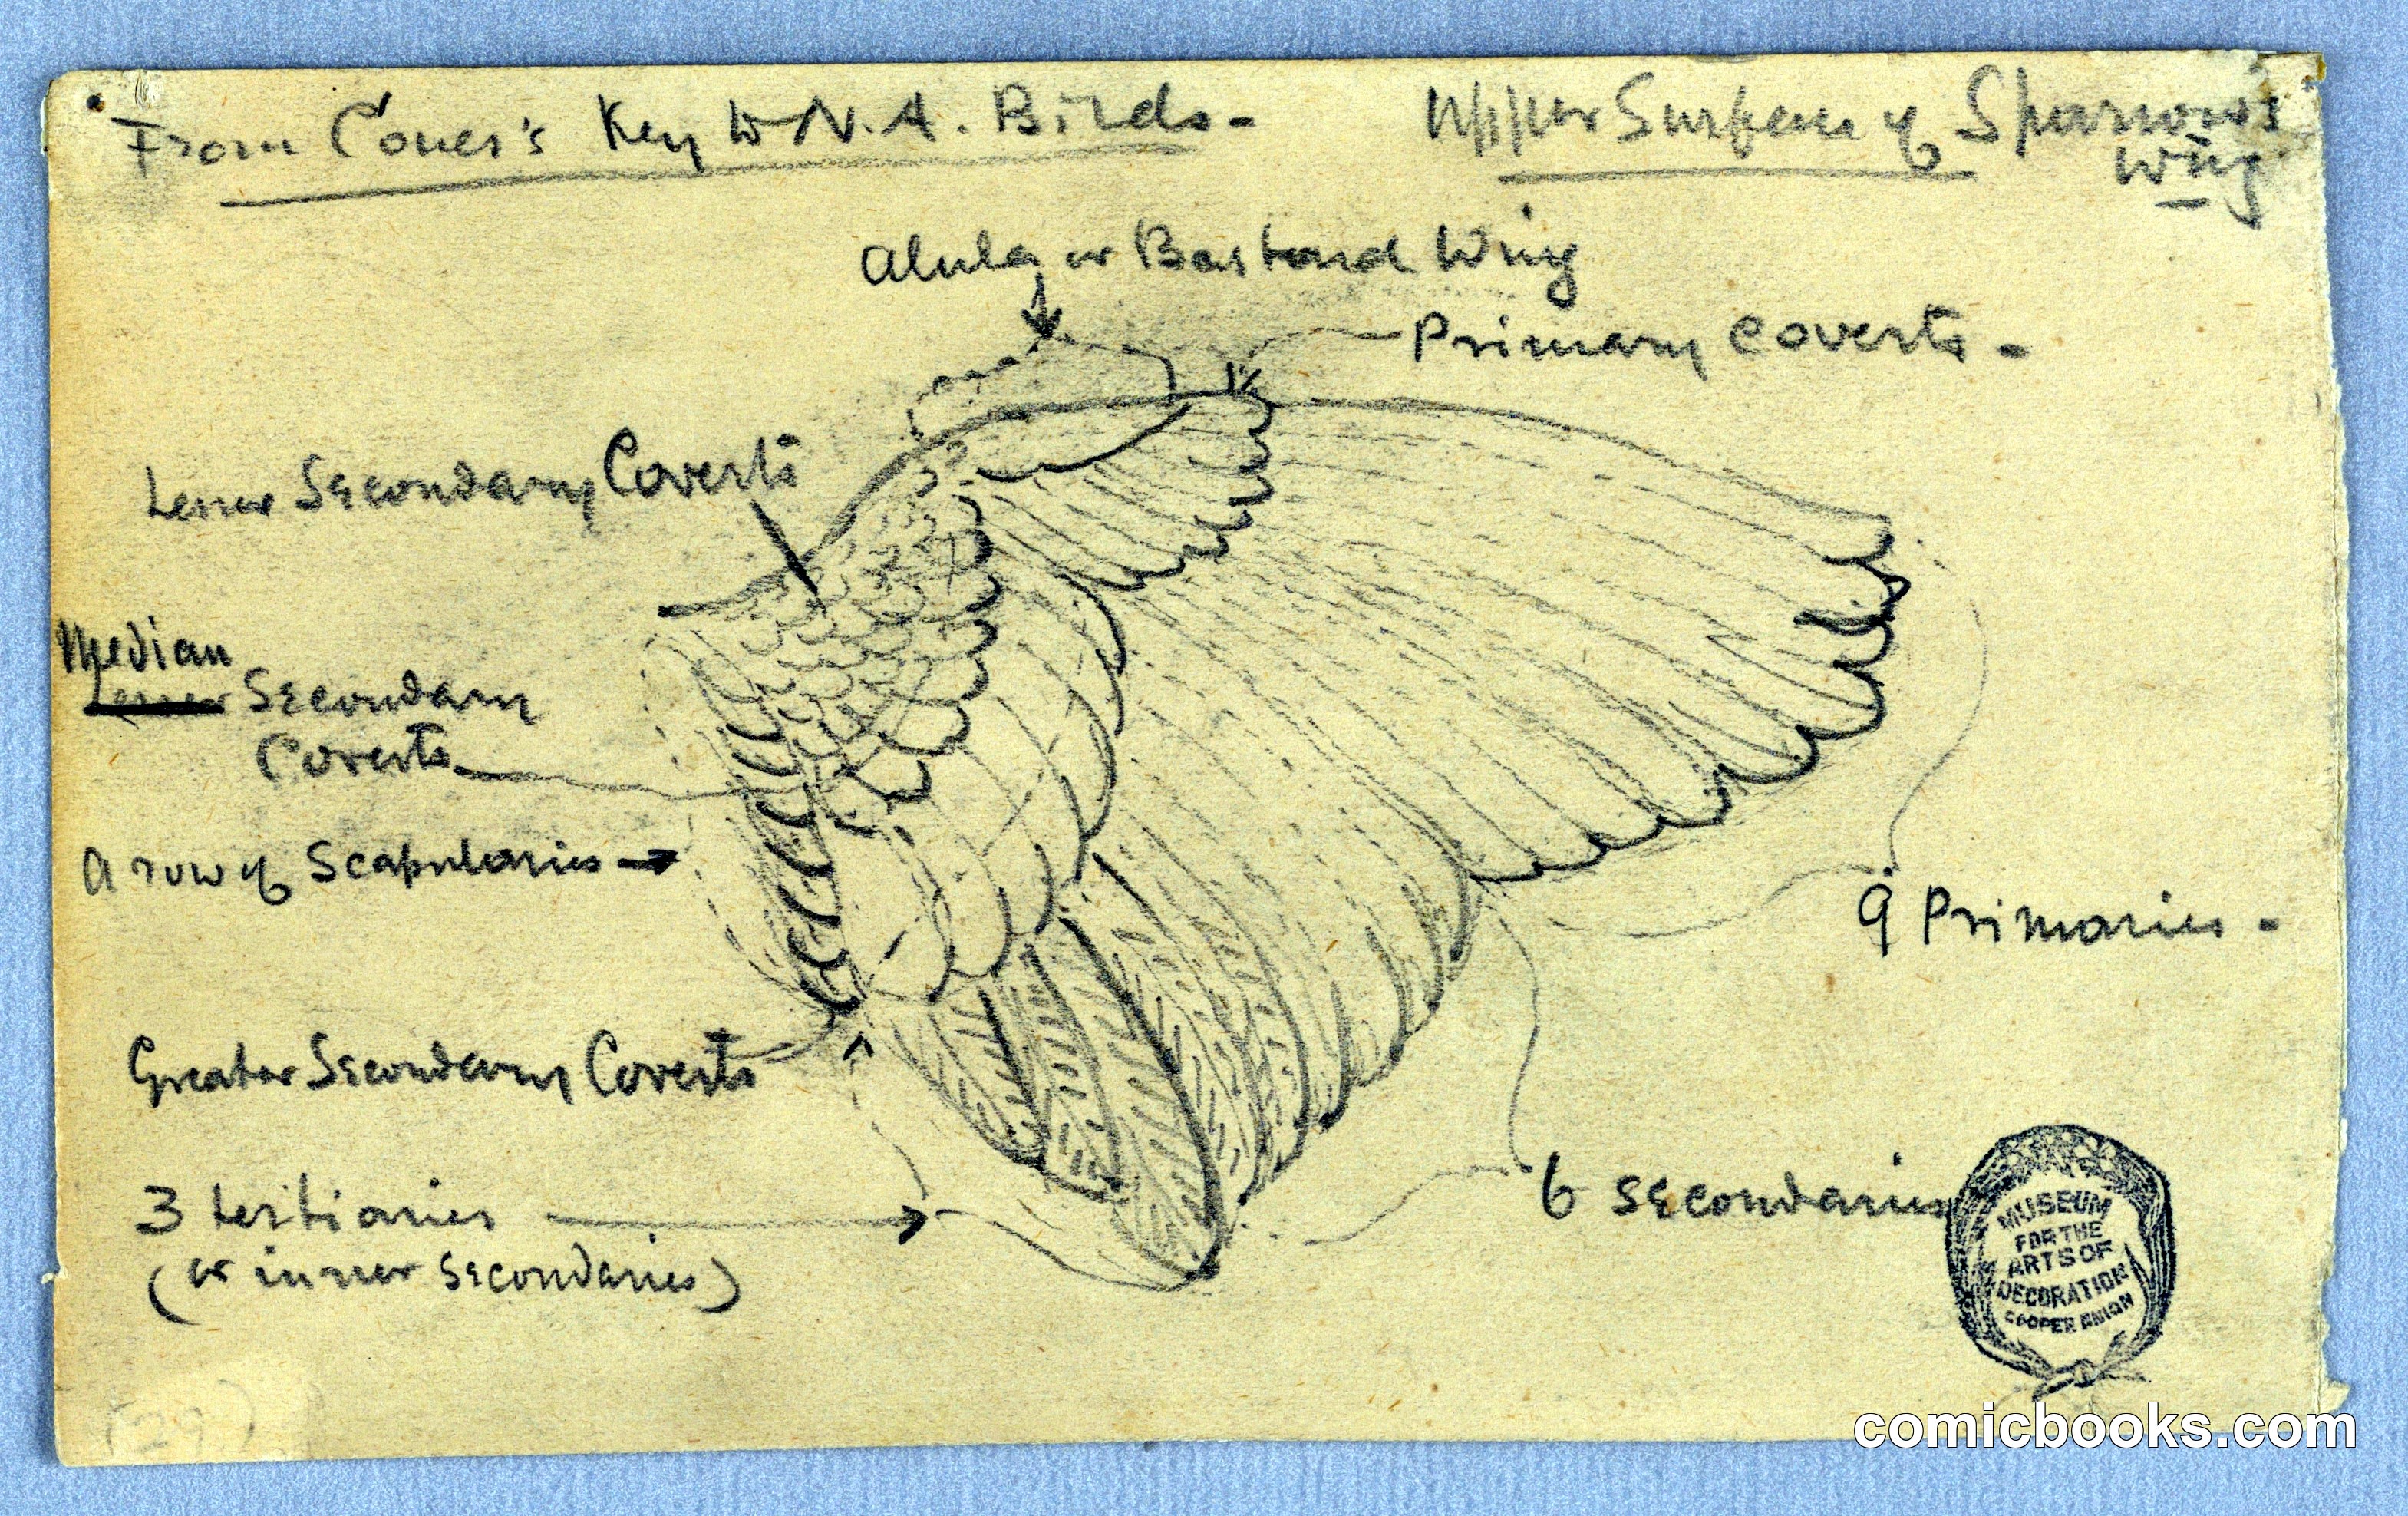 From Coues's Key to N.A. Birds-
Upper Surface of Sparrow's
Wing
Alula or Bastard Wing
Primary Coverts -
Lesser Secondary Coverts
Median
Lesser Secondary
Coverts
A row of Scapularies
9 Primaries -
Greater Secondary Coverts
3 tertiaries
(or inner secondaries)
6 secondaries
MUSEUM
FOR THE
ARTS OF
DECORATION
COOPER UNION
(29)
comicbooks.com